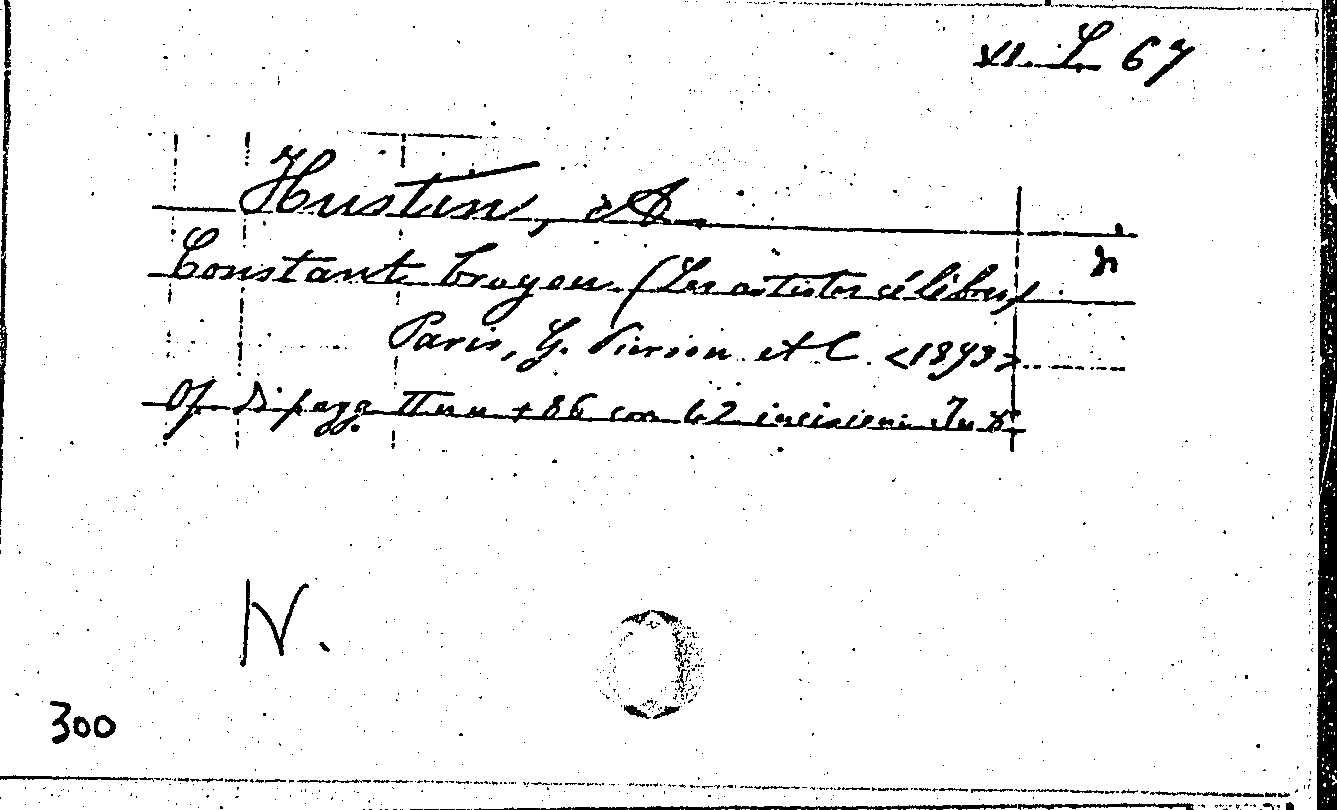 XI. L. 67
Hustin, A.
Constant Troyon (Les artistes célèbres)
n
Paris, G. Pierson et C. <1893>
Op. Di pagg. II n n + 86 con 42 incisioni In 8°
IV.
300